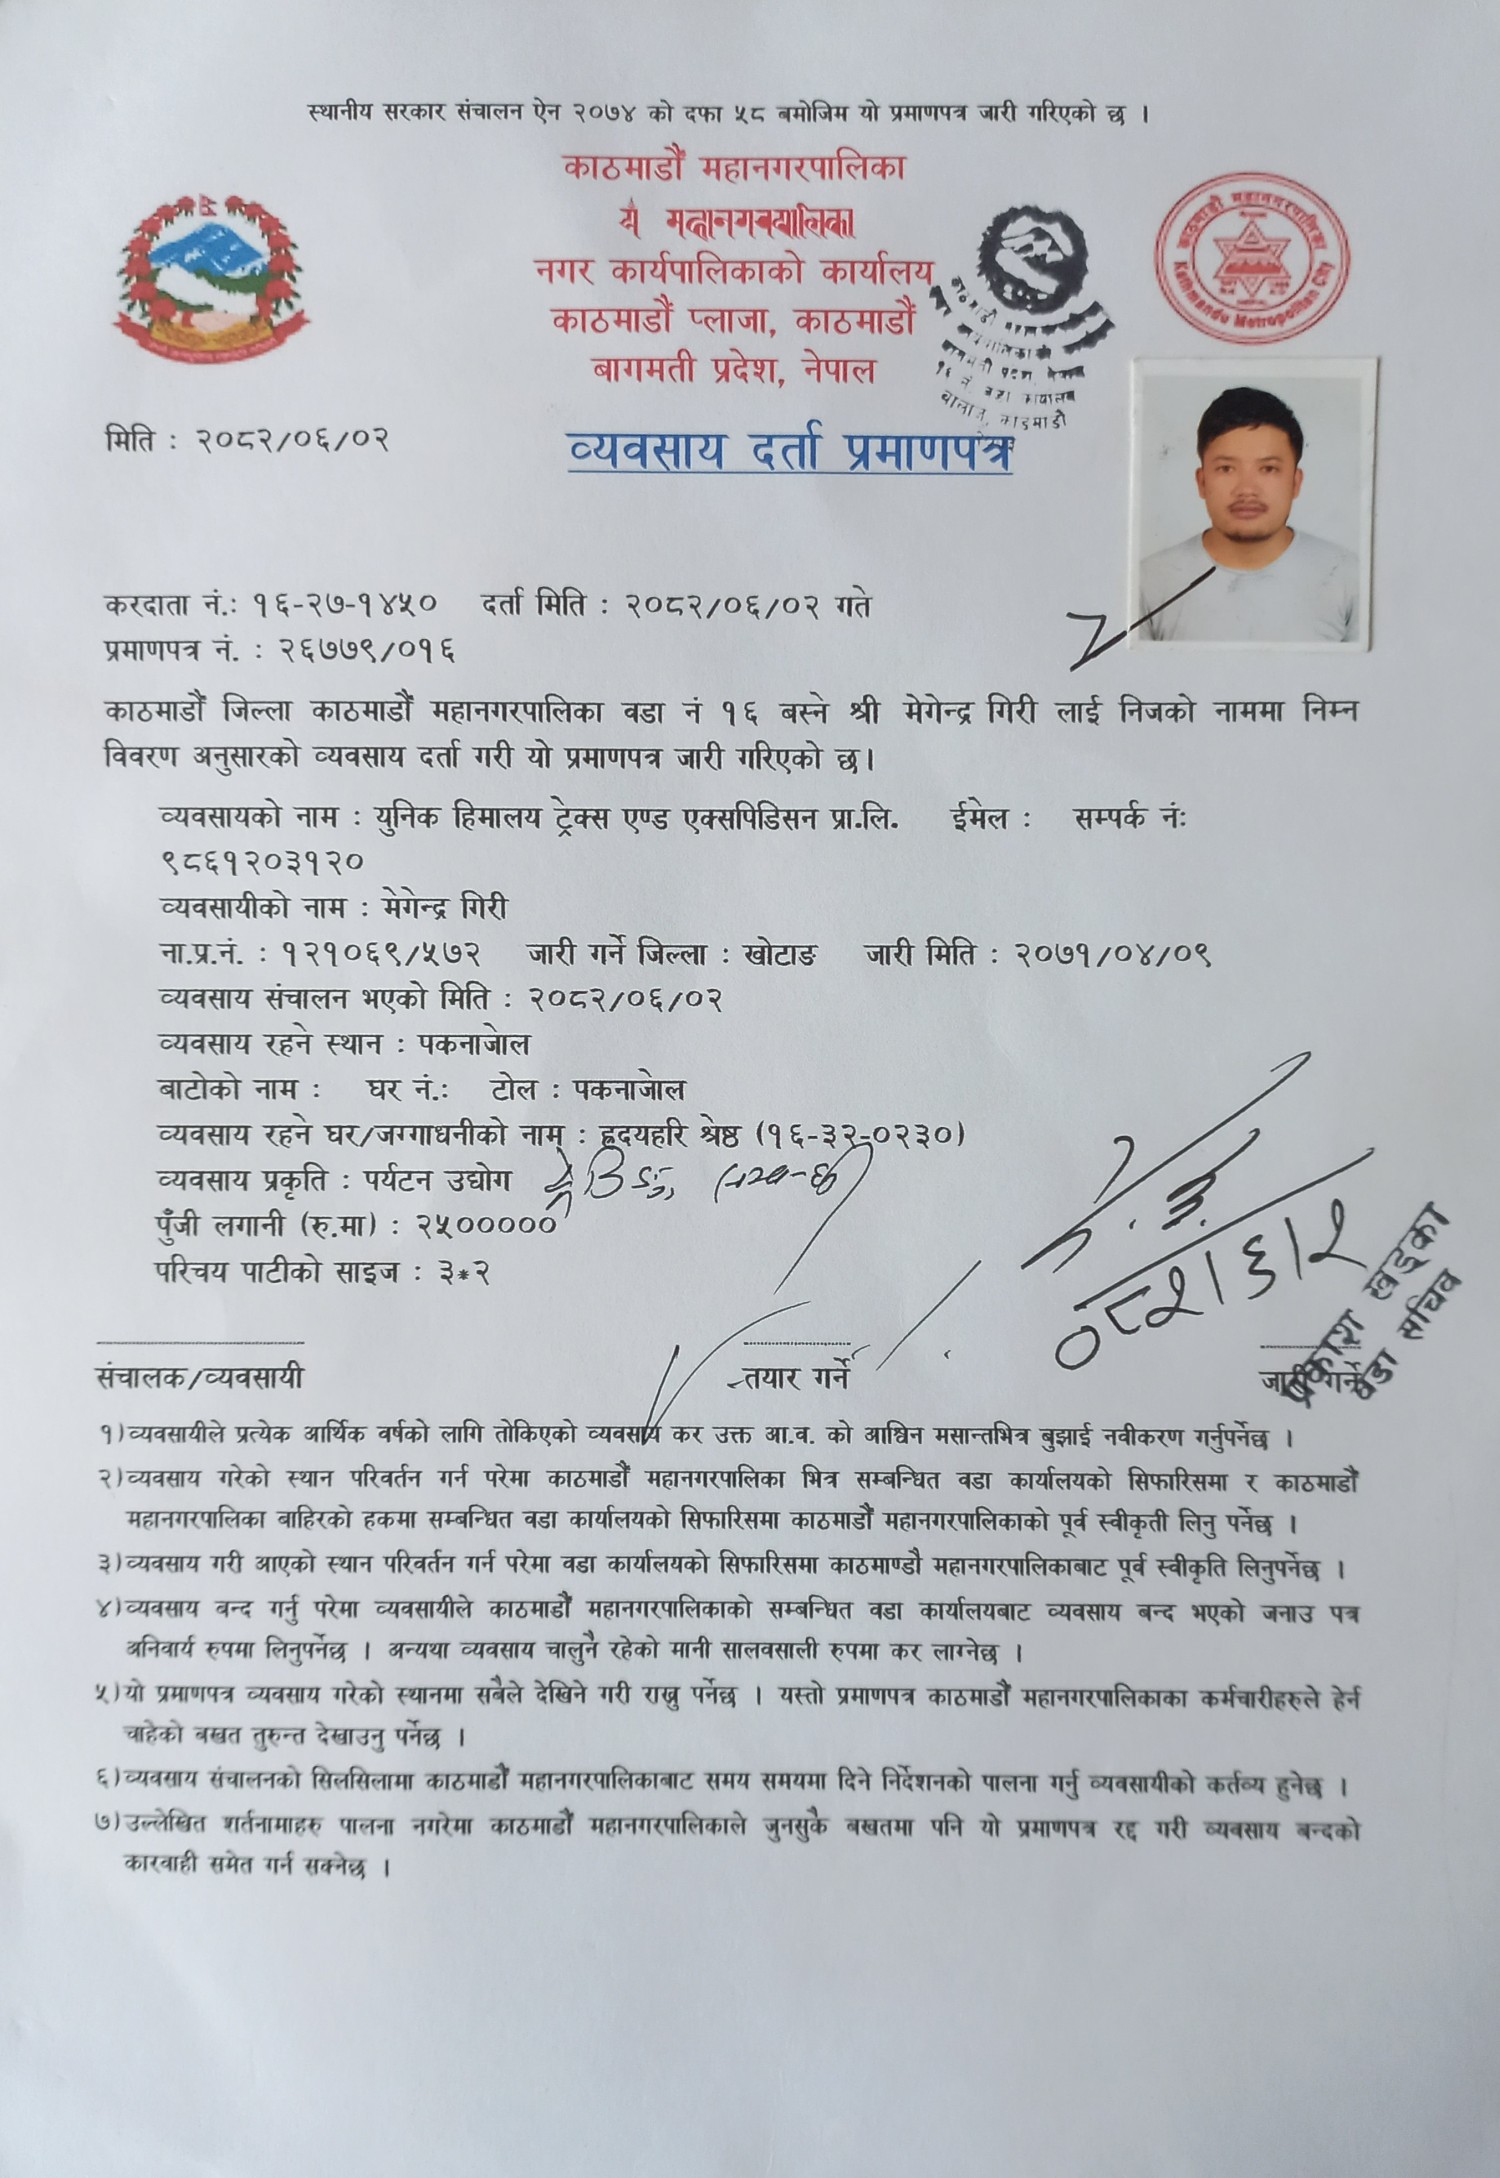 स्थानीय सरकार संचालन ऐन २०७४ को दफा ५८ बमोजिम यो प्रमाणपत्र जारी गरिएको छ ।
काठमाडौं महानगरपालिका
नगर कार्यपालिकाको कार्यालय
काठमाडौं प्लाजा, काठमाडौं
बागमती प्रदेश, नेपाल
काठमाडौं महानगरपालिका
Kathmandu Metropolitan City
मिति : २०८२/०६/०२
व्यवसाय दर्ता प्रमाणपत्र
करदाता नं.: १६-२७-१४५० दर्ता मिति : २०८२/०६/०२ गते
प्रमाणपत्र नं. : २६७७९/०१६
काठमाडौं जिल्ला काठमाडौं महानगरपालिका वडा नं १६ बस्ने श्री मेगेन्द्र गिरी लाई निजको नाममा निम्न
विवरण अनुसारको व्यवसाय दर्ता गरी यो प्रमाणपत्र जारी गरिएको छ।
व्यवसायको नाम : युनिक हिमालय ट्रेक्स एण्ड एक्सपिडिसन प्रा.लि. ईमेल : सम्पर्क नं:
९८६१२०३१२०
व्यवसायीको नाम : मेगेन्द्र गिरी
ना.प्र.नं. : १२१०६९/५७२ जारी गर्ने जिल्ला : खोटाङ जारी मिति : २०७१/०४/०९
व्यवसाय संचालन भएको मिति : २०८२/०६/०२
व्यवसाय रहने स्थान : पकनाजोल
बाटोको नाम : घर नं.: टोल : पकनाजोल
व्यवसाय रहने घर/जग्गाधनीको नाम : ह्रदयहरि श्रेष्ठ (१६-३२-०२३०)
व्यवसाय प्रकृति : पर्यटन उद्योग
पुँजी लगानी (रु.मा) : २५०००००
परिचय पाटीको साइज : ३*२
०८२/६/२
प्रकाश खड्का
वडा सचिव
संचालक/व्यवसायी तयार गर्ने जारी गर्ने
१)व्यवसायीले प्रत्येक आर्थिक वर्षको लागि तोकिएको व्यवसाय कर उक्त आ.व. को आश्विन मसान्तभित्र बुझाई नवीकरण गर्नुपर्नेछ ।
२)व्यवसाय गरेको स्थान परिवर्तन गर्न परेमा काठमाडौं महानगरपालिका भित्र सम्बन्धित वडा कार्यालयको सिफारिसमा र काठमाडौं
महानगरपालिका बाहिरको हकमा सम्बन्धित वडा कार्यालयको सिफारिसमा काठमाडौं महानगरपालिकाको पूर्व स्वीकृती लिनु पर्नेछ ।
३)व्यवसाय गरी आएको स्थान परिवर्तन गर्न परेमा वडा कार्यालयको सिफारिसमा काठमाण्डौ महानगरपालिकाबाट पूर्व स्वीकृति लिनुपर्नेछ ।
४)व्यवसाय बन्द गर्नु परेमा व्यवसायीले काठमाडौं महानगरपालिकाको सम्बन्धित वडा कार्यालयबाट व्यवसाय बन्द भएको जनाउ पत्र
अनिवार्य रुपमा लिनुपर्नेछ । अन्यथा व्यवसाय चालुनै रहेको मानी सालवसाली रुपमा कर लाग्नेछ ।
५)यो प्रमाणपत्र व्यवसाय गरेको स्थानमा सबैले देखिने गरी राख्नु पर्नेछ । यस्तो प्रमाणपत्र काठमाडौं महानगरपालिकाका कर्मचारीहरुले हेर्न
चाहेको बखत तुरुन्त देखाउनु पर्नेछ ।
६)व्यवसाय संचालनको सिलसिलामा काठमाडौं महानगरपालिकाबाट समय समयमा दिने निर्देशनको पालना गर्नु व्यवसायीको कर्तव्य हुनेछ ।
७)उल्लेखित शर्तनामाहरु पालना नगरेमा काठमाडौं महानगरपालिकाले जुनसुकै बखतमा पनि यो प्रमाणपत्र रद्द गरी व्यवसाय बन्दको
कारवाही समेत गर्न सक्नेछ ।